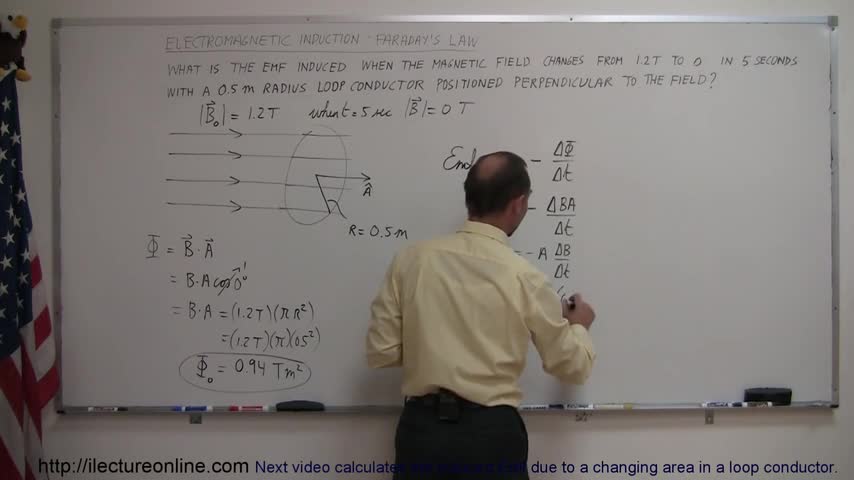 ELECTROMAGNETIC INDUCTION - FARADAY'S LAW
WHAT IS THE EMF INDUCED WHEN THE MAGNETIC FIELD CHANGES FROM 1.2T TO 0 IN 5 SECONDS
WITH A 0.5 m RADIUS LOOP CONDUCTOR POSITIONED PERPENDICULAR TO THE FIELD?
|B⃗₀| = 1.2 T when t = 5 sec |B⃗| = 0 T
Â
R = 0.5 m
Φ = B⃗ · A⃗
= B·A cos 0° 1
= B·A = (1.2T)(π R²)
= (1.2T)(π)(0.5²)
Φ₀ = 0.94 T m²
- ΔΦ/Δt
- ΔBA/Δt
= - A ΔB/Δt
http://ilectureonline.com Next video calculates due to a changing area in a loop conductor.